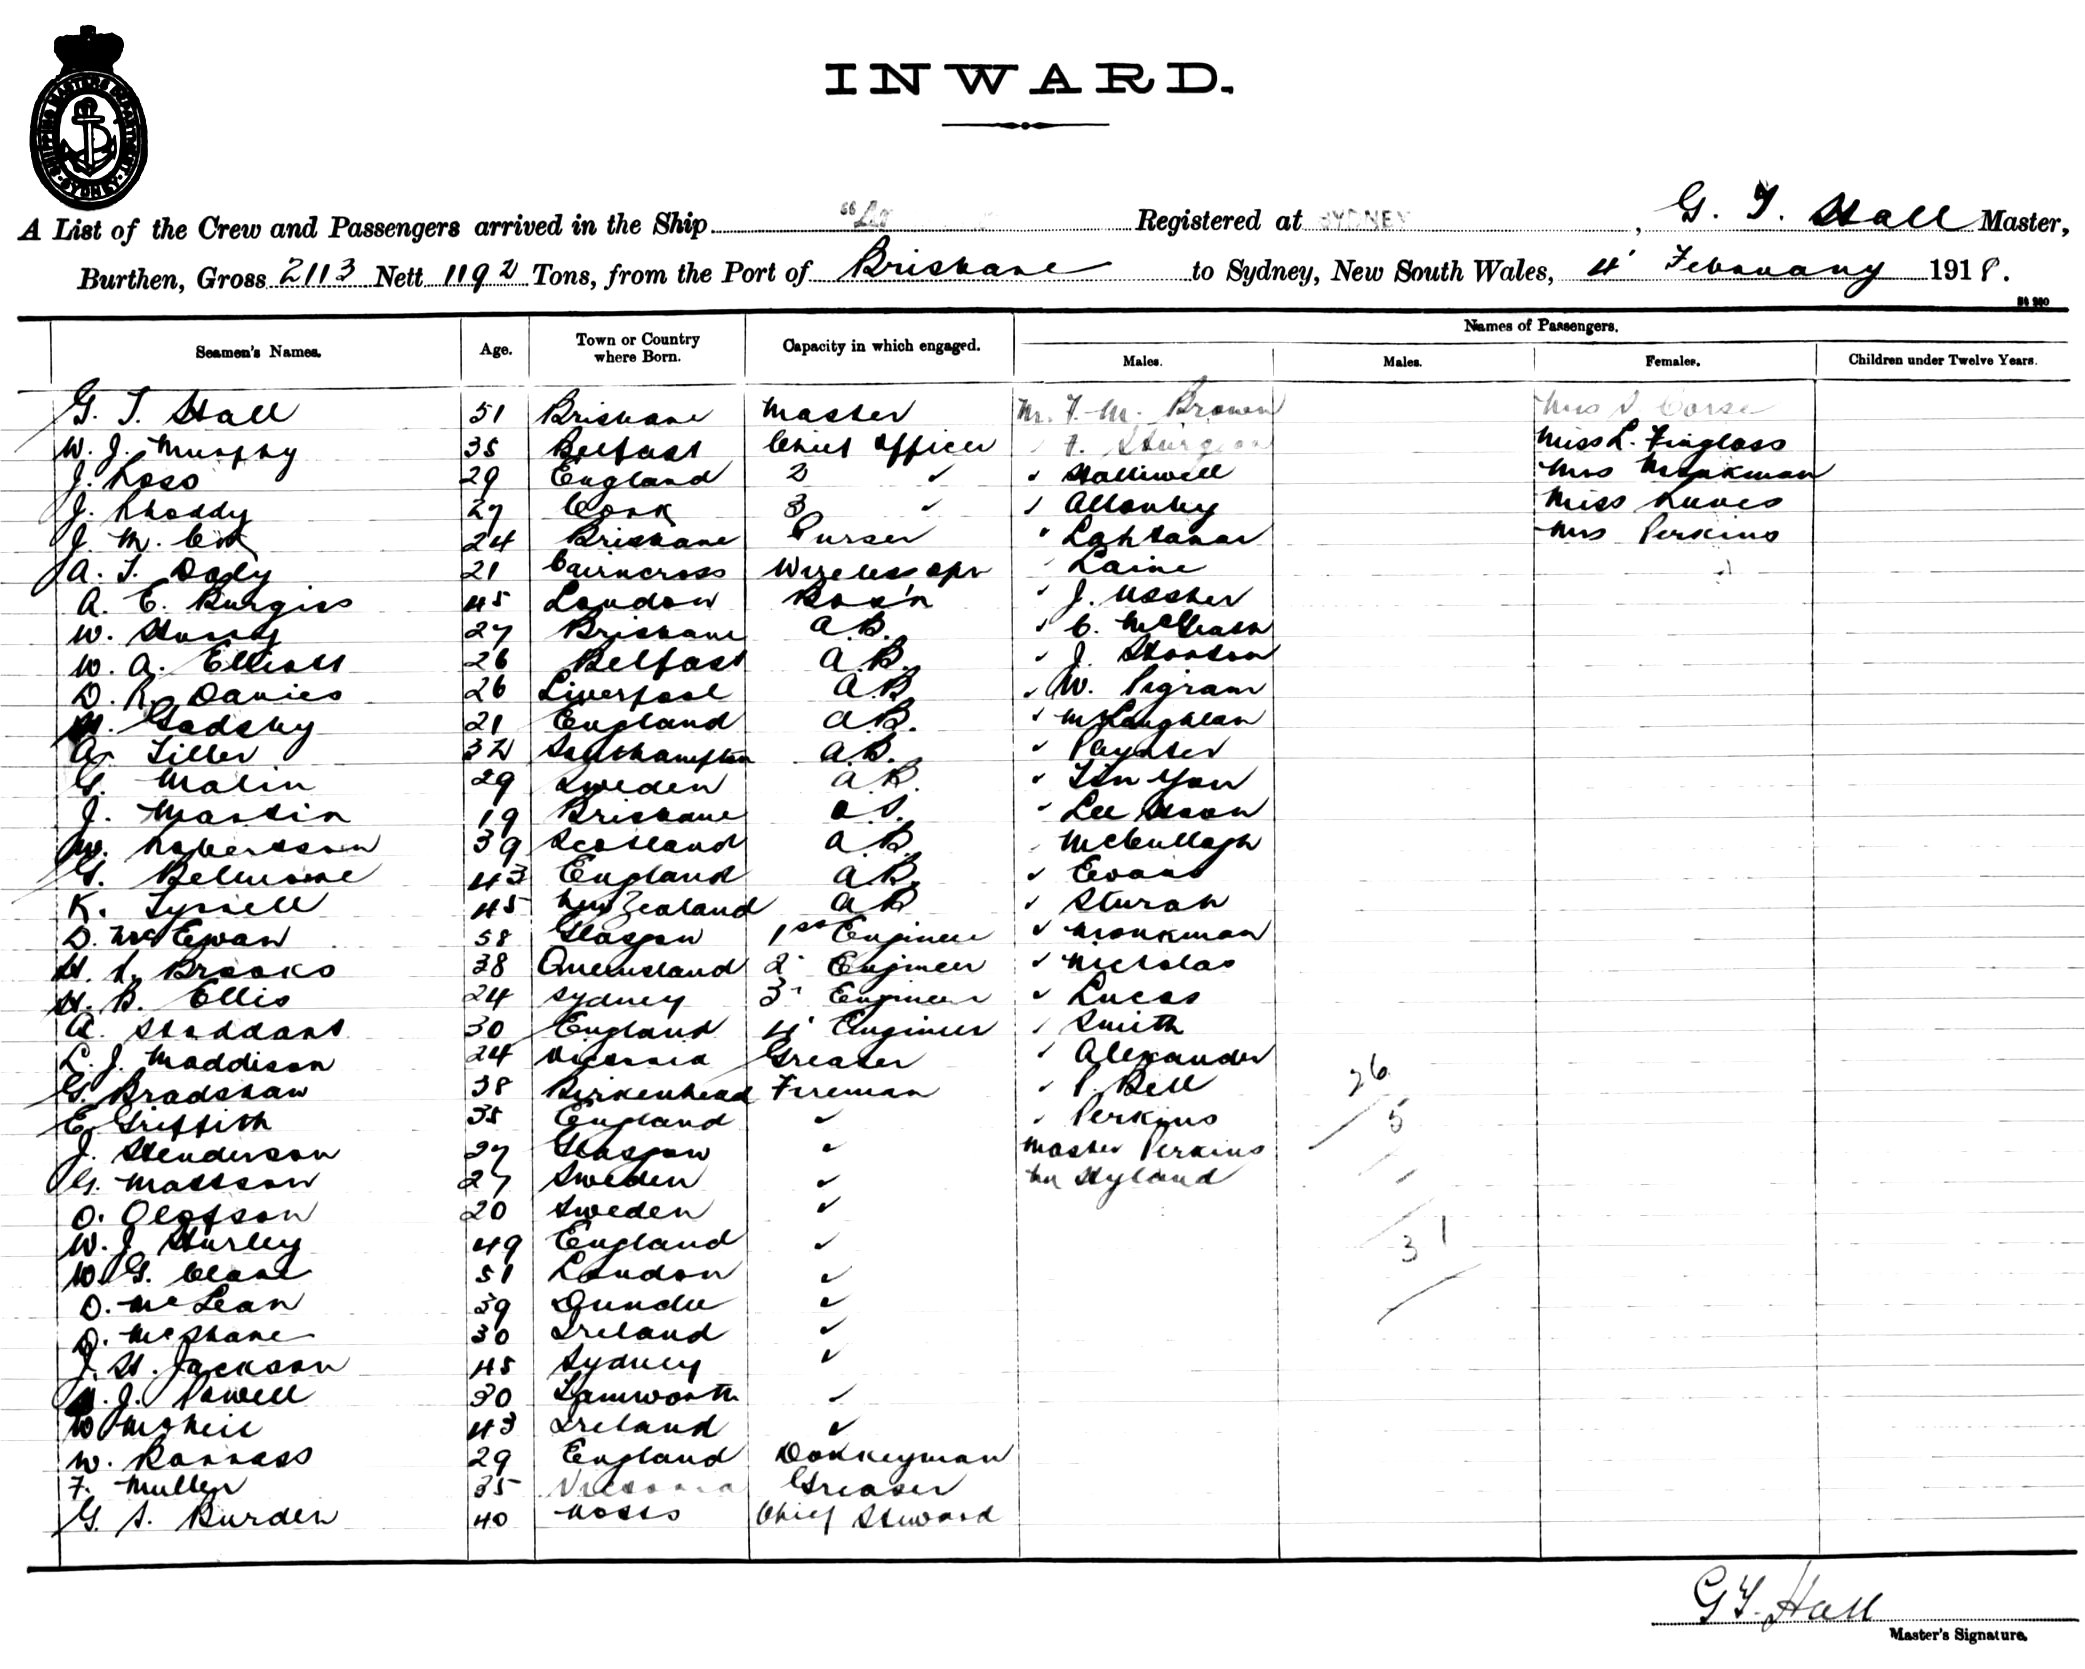 SHIPPING MASTERS DEPARTMENT SYDNEY
INWARD.
A List of the Crew and Passengers arrived in the Ship Registered at SYDNEY, G. T. Hall Master,
Burthen, Gross 2113 Nett 1192 Tons, from the Port of Brisbane to Sydney, New South Wales, 4' February 1918.
Names of Passengers.
Seamen's Names. Age. Town or Country where Born. Capacity in which engaged. Males. Males. Females. Children under Twelve Years.
G. T. Hall 51 Brisbane Master Mr. F. M. Brown Mrs Corse
W. J. Murphy 35 Belfast Chief Officer F. Sturgeon Miss L. Finglass
J. Ross 29 England 2 ✓ ✓ Halliwell Mrs Monkman
J. Rhoddy 27 Cork 3 ✓ ✓ Allonby Miss
J. M. Cox 24 Brisbane Purser Mrs Perkins
A. T. Dody 21 Cairncross Wireless Opr Laine
A. E. Burgiss 45 London Bos'n ✓ J. Ussher
W. 27 Brisbane A.B. ✓ C. McGrath
W. A. Elliott 26 Belfast A.B. ✓ J. Stanton
D. R. Davies 26 Liverpool A.B. ✓ W. Pigram
Gadsby 21 England A.B. ✓ McLaughlan
A. Tiller 32 Southampton A.B. ✓ Paynter
G. Malin 29 Sweden A.B. ✓ Tin You
J. Martin 19 Brisbane O.S. ✓ Lee Hoon
W. Robertson 39 Scotland A.B. McCullagh
G. Belmore 43 England A.B. ✓ Evans
K. Tyrrell 45 New Zealand A.B. ✓
D. McEwan 58 Glasgow 1st Engineer ✓ Monkman
H. S. Brooks 38 Queensland 2' Engineer ✓ Nicholas
H. B. Ellis 24 Sydney 3' Engineer ✓ Lucas
A. Stoddart 30 England 4' Engineer ✓ Smith
L. J. Maddison 24 Victoria Greaser ✓ Alexander
G. Bradshaw 38 Birkenhead Fireman ✓ P. Bell 26
E. Griffith 35 England ✓ ✓ Perkins 5
J. Henderson 27 Glasgow ✓ Master Perkins
G. Mattson 27 Sweden ✓ Mr Hyland
O. Olofson 20 Sweden ✓
W. J. Hurley 49 England ✓ 31
W. G. Clare 51 London ✓
D. McLean 39 Dundee ✓
D. McShane 30 Ireland ✓
J. H. Jackson 45 Sydney ✓
J. Powell 30 Tamworth ✓
W McNeil 43 Ireland ✓
W. Bannass 29 England Donkeyman
F. Muller 35 Victoria Greaser
G. S. Burden 40 Notts Chief Steward
G T. Hall
Master's Signature.